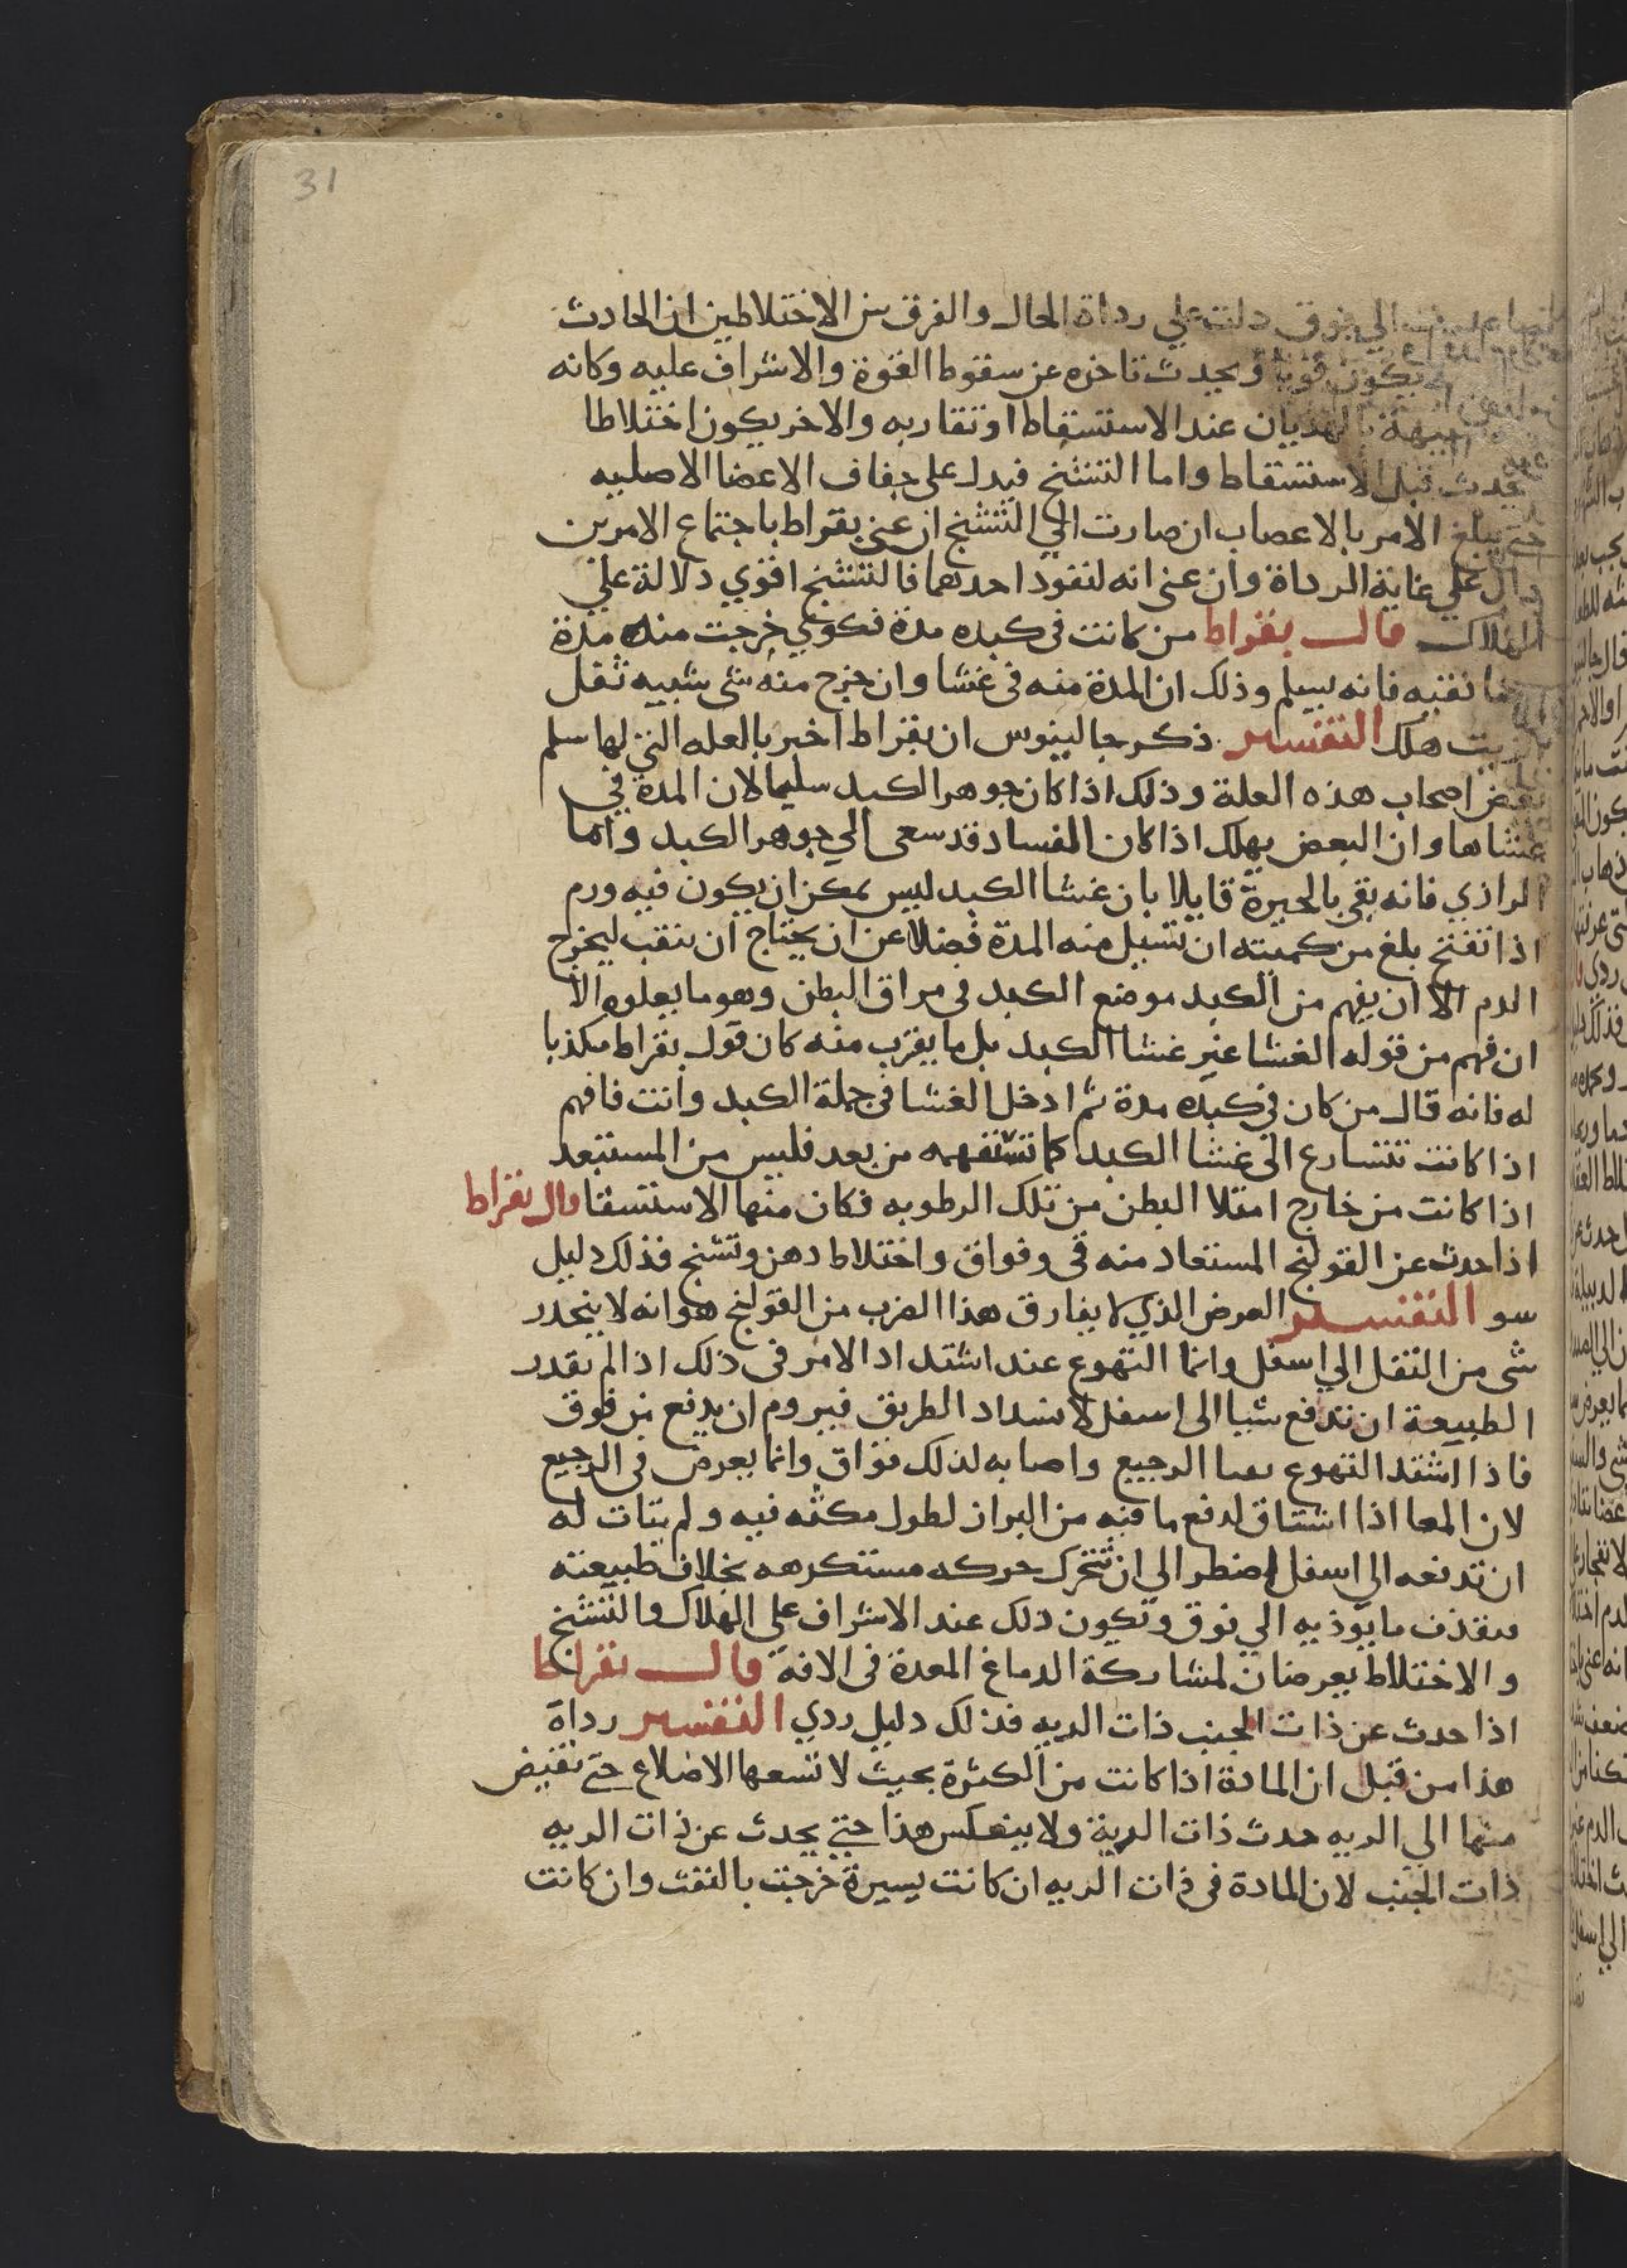 31
الي فوق دلت علي رداة الحال والفرق بين الاختلاطين ان الحادث
يكون قويا ويحدث تاخره عن سقوط القوة والاشراف عليه وكانه
بالهذيان عند الاستسقاط او تقاربه والاخر يكون اختلاطا
يحدث قبل الاستسقاط واما التشنخ فيدل علي جفاف الاعضا الاصليه
حتي يبلغ الامر بالاعصاب ان صارت الي التشنج ان عني بقراط باجتماع الامرين
دال علي غاية الرداة وان عني انه لنفود احدهما فالتشنخ اقوي دلالة علي
الهلاك قال بقراط من كانت في كبده مدة فكوي خرجت منه مدة
نقيه فانه يسلم وذلك ان المدة منه في غشا وان خرج منه شي شبيه ثفل
الزيت هلك التفسير ذكر جالينوس ان بقراط اخبر بالعله التي لها سلم
بعض اصحاب هذه العلة وذلك اذا كان جوهر الكبد سليما لان المدة في
غشاها وان البعض يهلك اذا كان الفساد قد سعي الي جوهر الكبد واما
الرازي فانه بقي بالحيرة قايلا بان غشا الكبد ليس يمكن ان يكون فيه ورم
اذا تفتح بلغ من كميته ان تسيل منه المدة فضلا عن ان يحتاج ان ينقب ليخرج
الدم الا ان يفهم من الكبد موضع الكبد في مراق البطن وهو ما يعلوه الا
ان فهم من قوله الغشا غير غشا الكبد بل ما يقرب منه كان قول بقراط مكذبا
له فانه قال من كان في كبده مدة ثم ادخل الغشا في جملة الكبد وانت فافهم
اذا كانت تتسارع الي غشا الكبد كما تستفهمه من بعد فليس من المستبعد
اذا كانت من خارج امتلا البطن من تلك الرطوبه فكان منها الاستسقا قال بقراط
اذا حدث عن القولنج المستعاد منه قي وفواق واختلاط دهن وتشنج فذلك دليل
سو التفسير العرض الذي لا يفارق هذا الضرب من القولنج هو انه لا ينحدر
شي من الثفل الي اسفل وانما التهوع عند اشتداد الامر في ذلك اذا لم تقدر
الطبيعة ان تدفع شيا الي اسفل لانسداد الطريق فيروم ان يدفع من فوق
فاذا اشتد التهوع الرجيع واصابه لذلك فواق وانما يعرض في الرجيع
لان المعا اذا اشتاق لدفع ما فيه من البراز لطول مكثه فيه ولم يتات له
ان تدفعه الي اسفل اضطر الي ان تتحرك حركه مستكرهه بخلاف طبيعته
فيقذف ما يوذيه الي فوق وتكون ذلك عند الاشراف علي الهلاك والتشنخ
والاختلاط يعرضان لمشاركة الدماغ المعدة في الافة قال بقراط
اذا حدث عن ذات الجنب ذات الريه فذلك دليل ردي التفسير رداة
هذا من قبل ان المادة اذا كانت من الكثرة بحيث لا تسعها الاضلاع حتي تفيض
منها الي الريه حدث ذات الرية ولا ينعكس هذا حتي يحدث عن ذات الريه
ذات الجنب لان المادة في ذات الريه ان كانت يسيرة خرجت بالنفث وان كانت